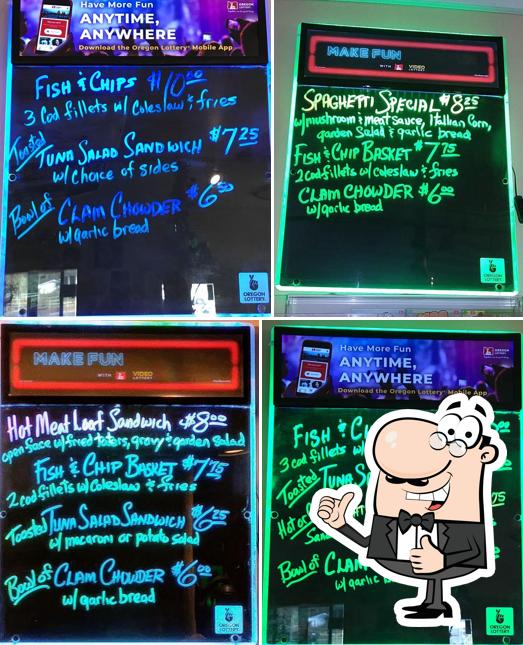 Have More Fun
ANYTIME,
ANYWHERE
Download the Oregon Lottery® Mobile App
OREGON LOTTERY
FISH & CHIPS $10.00
3 Cod fillets w/ Coleslaw & fries
Toasted TUNA SALAD SANDWICH $7.25
w/ choice of sides
Bowl of CLAM CHOWDER $6.50
w/ garlic bread
OREGON LOTTERY
MAKE FUN
WITH VIDEO LOTTERY
SPAGHETTI SPECIAL $8.25
w/mushroom & meat sauce, Italian Corn,
garden Salad & garlic bread
FISH & CHIP BASKET $7.75
2 cod fillets w/ coleslaw & fries
CLAM CHOWDER $6.00
w/garlic bread
OREGON LOTTERY
MAKE FUN
WITH VIDEO LOTTERY
HOT MEAT LOAF SANDWICH $8.00
open face w/ fried taters, gravy & garden salad
FISH & CHIP BASKET $7.75
2 cod fillets w/ Coleslaw & fries
Toasted TUNA SALAD SANDWICH $6.25
w/ macaroni or potato salad
Bowl of CLAM CHOWDER $6.00
w/ garlic bread
OREGON LOTTERY
Have More Fun
ANYTIME,
ANYWHERE
Download the Oregon Lottery® Mobile App
FISH &
3 cod fille
Toasted TUNA
Bowl of CLAM
w/ garlic
OREGON LOTTERY